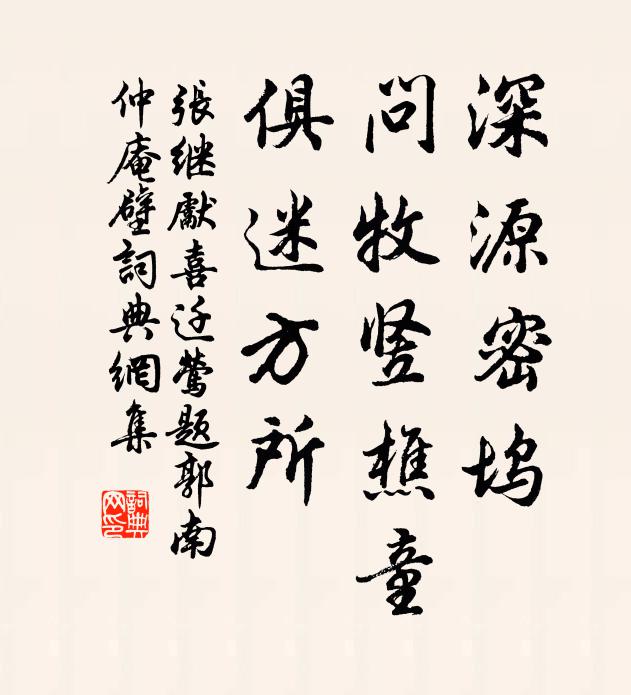 深源密塢
問牧竖樵童
俱迷方所
張继獻喜迁鶯题郭南
仲庵壁詞典網集
詞典网印